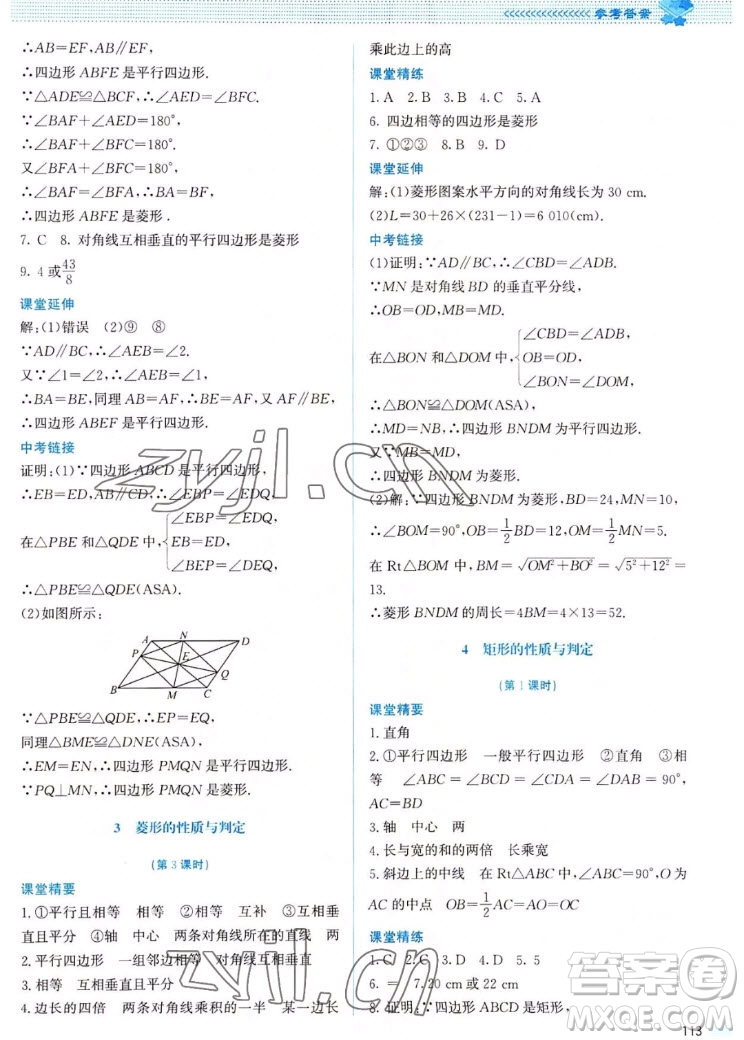 参考答案
∴AB=EF,∴AB∥EF.
∴四边形 ABFE 是平行四边形.
∵△ADE≌△BCF,∴∠AED=∠BFC.
∵∠BAF+∠AED=180°,
∴∠BAF+∠BFC=180°.
又∠BFA+∠BFC=180°,
∴∠BAF=∠BFA,∴BA=BF.
∴四边形 ABFE 是菱形.
7. C 8. 对角线互相垂直的平行四边形是菱形
9. 4 或43/8
课堂延伸
解:(1)错误 (2)⑨ ⑧
∵AD∥BC,∴∠AEB=∠2.
又∵∠1=∠2,∴∠AEB=∠1,
∴BA=BE,同理 AB=AF,∴BE=AF,又 AF∥BE,
∴四边形 ABEF 是菱形.
中考链接
证明:(1)∵四边形 ABCD 是平行四边形,
∴EB=ED,AB∥CD,∴∠EBP=∠EDQ,
在△PBE 和△QDE 中,{∠EBP=∠EDQ,
EB=ED,
∠BEP=∠DEQ,
∴△PBE≌△QDE(ASA).
(2)如图所示:
A N D
P E Q
B M C
∵△PBE≌△QDE,∴EP=EQ.
同理△BME≌△DNE(ASA),
∴EM=EN,∴四边形 PMQN 是平行四边形.
∵PQ⊥MN,∴四边形 PMQN 是菱形.
3 菱形的性质与判定
(第 3 课时)
课堂精要
1. ①平行且相等 相等 ②相等 互补 ③互相垂
直且平分 ④轴 中心 两条对角线所在的直线 两
2. 平行四边形 一组邻边相等 互相垂直
3. 相等 互相垂直且平分
4. 边长的四倍 两条对角线乘积的一半 某一边长
乘此边上的高
课堂精练
1. A 2. B 3. B 4. C 5. A
6. 四边相等的四边形是菱形
7. ①②③ 8. B 9. D
课堂延伸
解:(1)菱形图案水平方向的对角线长为 30 cm.
(2)L=30+26×(231-1)=6 010(cm).
中考链接
(1)证明:∵AD∥BC,∴∠CBD=∠ADB.
∵MN 是对角线 BD 的垂直平分线,
∴OB=OD,MB=MD.
在△BON 和△DOM 中,{∠CBD=∠ADB,
OB=OD,
∠BON=∠DOM,
∴△BON≌△DOM(ASA).
∴MD=NB,∴四边形 BNDM 为平行四边形.
又∵MB=MD,
∴四边形 BNDM 为菱形.
(2)解:∵四边形 BNDM 为菱形,BD=24,MN=10,
∴∠BOM=90°,OB=1/2BD=12,OM=1/2MN=5.
在 Rt△BOM 中,BM=√(OM²+BO²)=√(5²+12²)=
13.
∴菱形 BNDM 的周长=4BM=4×13=52.
4 矩形的性质与判定
(第 1 课时)
课堂精要
1. 直角
2. ①平行四边形 一般平行四边形 ②直角 ③相
等 ∠ABC=∠BCD=∠CDA=∠DAB=90°,
AC=BD
3. 轴 中心 两
4. 长与宽的和的两倍 长乘宽
5. 斜边上的中线 在 Rt△ABC 中,∠ABC=90°,O 为
AC 的中点 OB=1/2AC
课堂精练
1. C 2. C 3. D 4. D 5. 5
6. = 7. 20 cm 或 22 cm
8. 证明:∵四边形 ABCD 是矩形,
113
zyjl.cn
zyjl.cn
答案圈
MXQE.COM